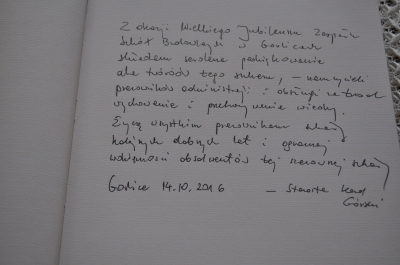 Z okazji Wielkiego Jubileuszu Zespołu
Szkół Budowlanych w Gorlicach
składam serdeczne podziękowanie
dla twórców tego sukcesu, – nauczycieli
pracowników administracji i obsługi za trud
wychowania i przekazywania wiedzy.
Życzę wszystkim pracownikom szkoły
kolejnych dobrych lat i ogromnej
wdzięczności absolwentów tej szkoły
Gorlice 14.10.2016 – Starosta Karol
Górski